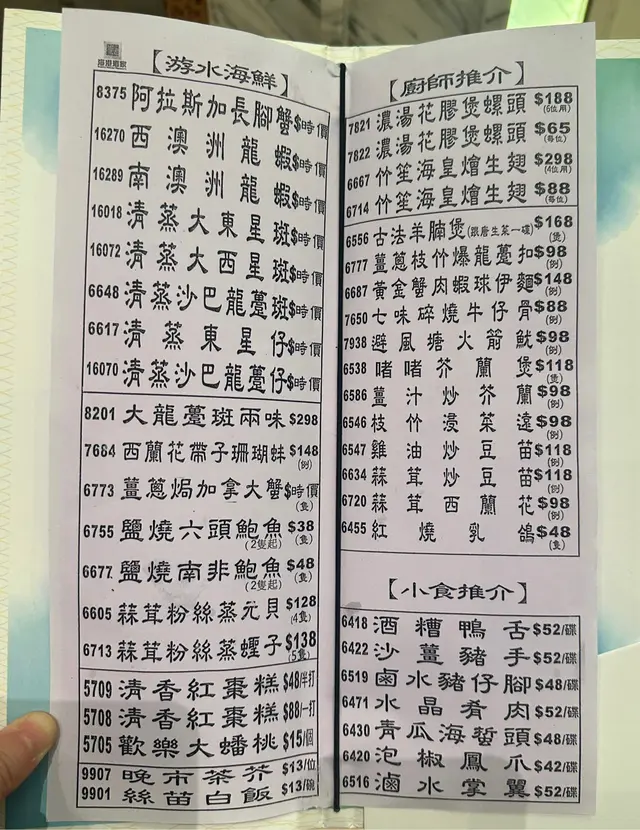 【游水海鮮】
8375 阿拉斯加長腳蟹 $時價
16270 西澳洲龍蝦 $時價
16289 南澳洲龍蝦 $時價
16018 清蒸大東星斑 $時價
16072 清蒸大西星斑 $時價
6648 清蒸沙巴龍躉斑 $時價
6617 清蒸東星仔 $時價
16070 清蒸沙巴龍躉仔 $時價
8201 大龍躉斑兩味 $298
7684 西蘭花帶子珊瑚蚌 $148 (例)
6773 薑蔥焗加拿大蟹 $時價 (隻)
6755 鹽燒六頭鮑魚 $38 (隻)
(2隻起)
6677 鹽燒南非鮑魚 $48 (隻)
(2隻起)
6605 蒜茸粉絲蒸元貝 $128 (4隻)
6713 蒜茸粉絲蒸蟶子 $138 (5隻)
5709 清香紅棗糕 $48/半打
5708 清香紅棗糕 $88/一打
5705 歡樂大蟠桃 $15/個
9907 晚市茶芥 $13/位
9901 絲苗白飯 $13/碗
【廚師推介】
7821 濃湯花膠煲螺頭 $188 (6位用)
7822 濃湯花膠煲螺頭 $65 (每位)
6667 竹笙海皇燴生翅 $298 (4位用)
6714 竹笙海皇燴生翅 $88 (每位)
6556 古法羊腩煲(跟唐生菜一碟) $168 (煲)
6777 薑蔥枝竹爆龍躉扣 $98 (例)
6687 黃金蟹肉蝦球伊麵 $148 (例)
7650 七味碎燒牛仔骨 $88 (例)
7938 避風塘火箭魷 $98 (例)
6538 啫啫芥蘭煲 $118 (煲)
6586 薑汁炒芥蘭 $98 (例)
6546 枝竹浸菜遠 $98 (例)
6547 雞油炒豆苗 $118 (例)
6634 蒜茸炒豆苗 $118 (例)
6720 蒜茸西蘭花 $98 (例)
6455 紅燒乳鴿 $48 (隻)
【小食推介】
6418 酒糟鴨舌 $52/碟
6422 沙薑豬手 $52/碟
6519 鹵水豬仔腳 $48/碟
6471 水晶肴肉 $52/碟
6430 青瓜海蜇頭 $48/碟
6420 泡椒鳳爪 $42/碟
6516 滷水掌翼 $52/碟